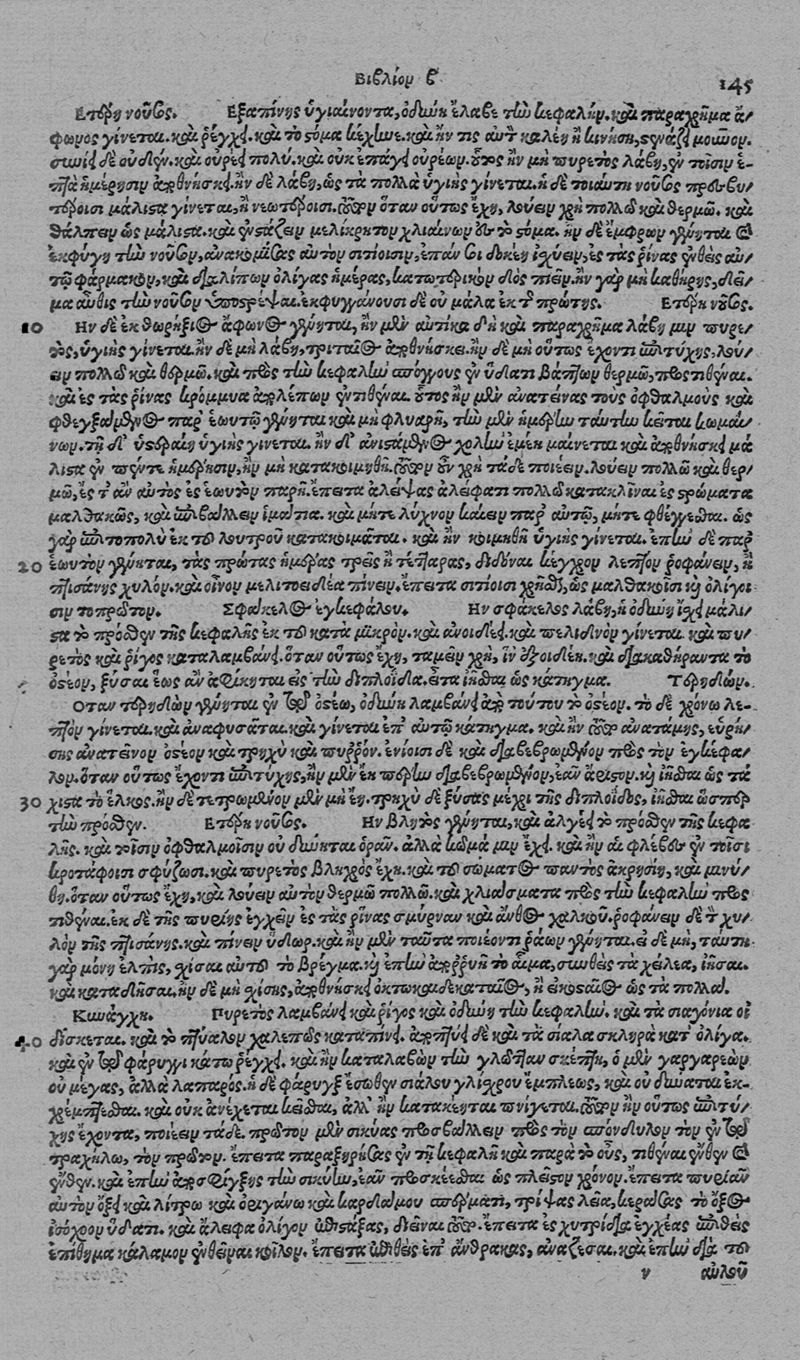 Βιβλίον β 145
Ετέρη νοῦσος. Εξαπίνης ὑγιαίνοντα, ὀδύνη ἔλαβε τὴν κεφαλήν. καὶ παραχρῆμα ἄ-
φωνος γίνεται. καὶ ῥέγχει. καὶ τὸ στόμα κέχηνε. καὶ ἤν τις αὐτὸν καλέῃ ἢ κινήσῃ, στενάζει μοῦνον.
ξυνίει δὲ οὐδέν. καὶ οὐρέει πολύ. καὶ οὐκ ἐπάγει οὐρέων. οὗτος ἢν μὴ πυρετὸς λάβῃ, ἐν τῇσιν ἑ-
πτὰ ἡμέρῃσιν ἀποθνήσκει. ἢν δὲ λάβῃ, ὡς τὰ πολλὰ ὑγιὴς γίνεται. ἡ δὲ τοιαύτη νοῦσος πρεσβυ-
τέροισι μάλιστα γίνεται, ἢ νεωτέροισι. τοῦτον ὅταν οὕτως ἔχῃ, λούειν χρὴ πολλῷ καὶ θερμῷ. καὶ
θάλπειν ὡς μάλιστα. καὶ ἐνστάζειν μελίκρητον χλιαίνων ἐς τὸ στόμα. ἢν δὲ ἔμφρων γένηται καὶ
ἐκφύγῃ τὴν νοῦσον, ἀνακομίζας αὐτὸν σιτίοισιν, ἐπὰν σοι δοκέῃ ἰσχύειν, ἐς τὰς ῥῖνας ἐνθεὶς αὐ-
τῷ φάρμακον, καὶ διαλίπων ὀλίγας ἡμέρας, κατωτερικὸν δὸς πιεῖν. ἢν γὰρ μὴ καθήρῃς, δεῖ-
μα αὖθις τὴν νοῦσον ὑποστρέψαι. ἐκφυγγάνουσι δὲ οὐ μάλα ἐκ τῆς πρώτης. Ετέρη νοῦσος.
10 Ην δὲ ἐκ θωρήξιος ἄφωνος γένηται, ἢν μὲν αὐτίκα δὴ καὶ παραχρῆμα λάβῃ μιν πυρε-
τὸς, ὑγιὴς γίνεται. ἢν δὲ μὴ λάβῃ, τριταῖος ἀποθνήσκει. ἢν δὲ μὴ οὕτως ἔχοντι ἐπιτύχῃς, λού-
ειν πολλῷ καὶ θερμῷ. καὶ πρὸς τὴν κεφαλὴν σπόγγους ἐν ὕδατι βάπτων θερμῷ, προστιθέναι.
καὶ ἐς τὰς ῥῖνας κρόμμυα ἀπολέπων ἐντιθέναι. οὗτος ἢν μὲν ἀνατείνας τοὺς ὀφθαλμοὺς καὶ
φθεγξάμενος παρ' ἑωυτῷ γένηται καὶ μὴ φλυαρῇ, τὴν μὲν ἡμέρην ταύτην κεῖται κωμαί-
νων. τῇ δ' ὑστεραίῃ ὑγιὴς γίνεται. ἢν δ' ἀνιστάμενος χολὴν ἐμέῃ μαίνεται καὶ ἀποθνήσκει μά
λιστα ἐν πέντε ἡμέρῃσιν, ἢν μὴ κατακοιμηθῇ. τοῦτον οὖν χρὴ τάδε ποιεῖν. λούειν πολλῷ καὶ θερ-
μῷ, ἔς τ' ἂν αὐτὸς ἐς ἑωυτὸν παρῇ. ἔπειτα ἀλείψας ἀλείφατι πολλῷ κατακλῖναι ἐς στρώματα
μαλθακῶς, καὶ ἐπιβάλλειν ἱμάτια. καὶ μήτε λύχνον καίειν παρ' αὐτῷ, μήτε φθέγγεσθαι. ὡς
γὰρ ἐπιτοπολὺ ἐκ τοῦ λουτροῦ κατακοιμᾶται. καὶ ἢν κοιμηθῇ ὑγιὴς γίνεται. ἐπὴν δὲ παρ'
20 ἑωυτὸν γένηται, τὰς πρώτας ἡμέρας τρεῖς ἢ τέτταρας, διδόναι κέγχρον λεπτὸν ῥοφάνειν, ἢ
πτισάνης χυλόν. καὶ οἶνον μελιτοειδέα πίνειν. ἔπειτα σιτίοισι χρῆσθαι, ὡς μαλθακοῖσι καὶ ὀλίγοι
σιν τοπρῶτον. Σφάκελος ἐγκεφάλου. Ην σφάκελος λάβῃ, ἡ ὀδύνη ἴσχει μάλι-
στα τὸ πρόσθεν τῆς κεφαλῆς ἐκ τοῦ κατὰ μικρόν. καὶ ἀνοιδέει. καὶ πελιδνὸν γίνεται. καὶ πυ-
ρετὸς καὶ ῥίγος καταλαμβάνει. ὅταν οὕτως ἔχῃ, ταμεῖν χρὴ, ἵν' ἐξοιδέῃ. καὶ διακαθήραντα τὸ
ὀστέον, ξύσαι ἕως ἂν ἀφίκηται εἰς τὴν διπλοΐδα. εἶτα ἰῆσθαι ὡς κάτηγμα. Τερηδών.
Οταν τερηδὼν γένηται ἐν τῷ ὀστέῳ, ὀδύνη λαμβάνει ἀπὸ τούτου τὸ ὀστέον. τὸ δὲ χρόνῳ λε-
πτὸν γίνεται. καὶ ἀναφυσᾶται. καὶ γίνεται ἐπ' αὐτῷ κάτηγμα. καὶ ἢν τοῦτο ἀνατάμῃς, εὑρή-
σῃς ἀνατεῖνον ὀστέον καὶ τρηχὺ καὶ πυῤῥόν. ἐνίοισι δὲ καὶ διαβεβρωμένον πρὸς τὸν ἐγκέφα-
λον. ὅταν οὕτως ἔχοντι ἐπιτύχῃς, ἢν μὲν ᾖ πέρην διαβεβρωμένον, ἐᾶν ἄριστον. καὶ ἰῆσθαι ὡς τά
30 χιστα τὸ ἕλκος. ἢν δὲ τετρωμένον μὲν μὴ ἔῃ. τρηχὺ δὲ ξύσας μέχρι τῆς διπλοΐδος, ἰῆσθαι ὥσπερ
τὴν πρόσθεν. Ετέρη νοῦσος. Ην βλητὸς γένηται, καὶ ἀλγέει τὸ πρόσθεν τῆς κεφα
λῆς. καὶ τοῖσιν ὀφθαλμοῖσιν οὐ δύνηται ὁρᾶν. ἀλλὰ κῶμά μιν ἔχει. καὶ ἢν αἱ φλέβες ἐν τοῖσι
κροτάφοισι σφύζωσι. καὶ πυρετὸς βληχρὸς ἔχῃ. καὶ τοῦ σώματος παντὸς ἀκρησίη, καὶ μινύ-
θῃ. ὅταν οὕτως ἔχῃ, καὶ λούειν αὐτὸν θερμῷ πολλῷ. καὶ χλιάσματα πρὸς τὴν κεφαλὴν προσ
τιθέναι. ἐκ δὲ τῆς πυρίης ἐγχεῖν ἐς τὰς ῥῖνας σμύρναν καὶ ἄνθος χαλκοῦ. ῥοφάνειν δὲ τὸν χυ-
λὸν τῆς πτισάνης. καὶ πίνειν ὕδωρ. καὶ ἢν μὲν ταῦτα ποιέοντι ῥάων γένηται. εἰ δὲ μὴ, ταύτῃ
γὰρ μόνῃ ἐλπὶς, σχίσαι αὐτοῦ τὸ βρέγμα. καὶ ἐπὴν ἀποῤῥυῇ τὸ αἷμα, συνθεὶς τὰ χείλεα, ἰῆσαι.
καὶ καταδῆσαι. ἢν δὲ μὴ σχίσῃς, ἀποθνήσκει ὀκτωκαιδεκαταῖος, ἢ εἰκοσαῖος ὡς τὰ πολλά.
Κυνάγχη. Πυρετὸς λαμβάνει καὶ ῥίγος καὶ ὀδύνη τὴν κεφαλήν. καὶ τὰ σιαγόνια οἰ
40 δίσκεται. καὶ τὸ πτύαλον χαλεπῶς καταπίνει. ἀποπτύει δὲ καὶ τὰ σίαλα σκληρὰ κατ' ὀλίγα.
καὶ ἐν τῷ φάρυγγι κάτω ῥέγχει. καὶ ἢν καταλαβὼν τὴν γλῶτταν σκέπτῃ, ὁ μὲν γαργαρεὼν
οὐ μέγας, ἀλλὰ λαπαρός. ἡ δὲ φάρυγξ ἔσωθεν σιάλου γλίσχρου ἔμπλεως, καὶ οὐ δύναται ἐκ-
χρέμπτεσθαι. καὶ οὐκ ἀνέχεται κεῖσθαι, ἀλλ' ἢν κατακέηται πνίγεται. τοῦτον ἢν οὕτως ἐπιτύ-
χῃς ἔχοντα, ποιέειν τάδε. πρῶτον μὲν σικύας προσβάλλειν πρὸς τὸν σπόνδυλον τὸν ἐν τῷ
τραχήλῳ, τὸν πρῶτον. ἔπειτα παραξυρήσας ἐν τῇ κεφαλῇ καὶ παρὰ τὸ οὖς, τιθέναι ἔνθεν καὶ
ἔνθεν. καὶ ἐπὴν ἀποσφίγξῃς τὴν σικύην, ἐᾶν προσκέεσθαι ὡς πλεῖστον χρόνον. ἔπειτα πυριᾶν
αὐτὸν ὄξει καὶ λίτρῳ καὶ ὀριγάνῳ καὶ καρδάμου σπέρματι, τρίψας λεῖα, κεράσας τὸ ὄξος
ἰσόχρουν ὕδατι. καὶ ἄλειφα ὀλίγον ἐπιστάξας, διεῖναι τοῦτο. ἔπειτα ἐς χυτρίδα ἐγχέας ἐπιθεὶς
ἐπίθημα κάλαμον ἐνθεῖναι κοῖλον. ἔπειτα ἐπιθεὶς ἐπ' ἄνθρακας, ἀναζέσαι. καὶ ἐπὴν διὰ τοῦ
ν αὐλοῦ